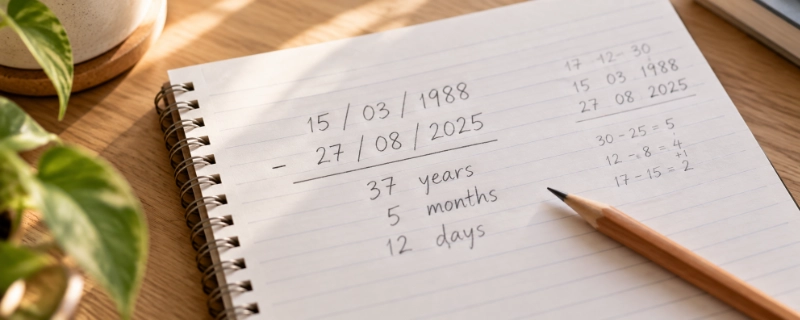 15 / 03 / 1988
- 27 / 08 / 2025
37 years
5 months
12 days
17 12- 30
15 03 1988
27 08 2025
30 - 25 = 5
12 - 8 = 4
+1
17 - 15 = 2